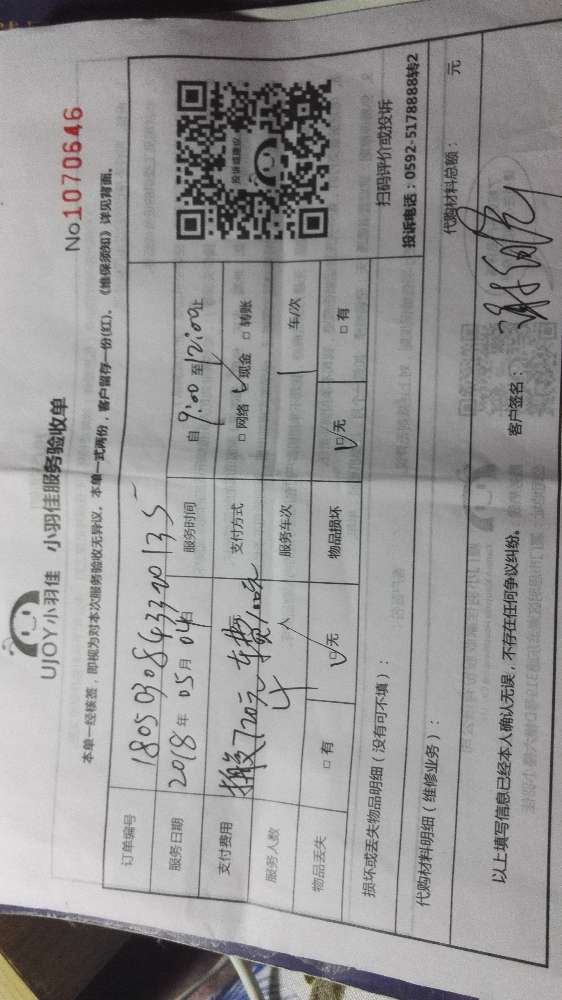 UJOY小羽佳 小羽佳服务验收单
No1070646
本单一经核签，即视为对本次服务验收无异议。本单一式两份，客户留存一份(红)。《维保须知》详见背面。
订单编号 18050308433200135
服务日期 2018年05月04日 服务时间 自9:00至12:00止
支付费用 搬家720元 车费 支付方式 □网络 ✓现金 □转账
服务人数 4人 服务车次 1 车/次
物品丢失 □有 ✓无 物品损坏 ✓无 □有
投诉或建议
扫码评价或投诉
投诉电话：0592-5178888转2
损坏或丢失物品明细（没有可不填）：
代购材料明细（维修业务）：
代购材料总额： 元
以上填写信息已经本人确认无误，不存在任何争议纠纷。 客户签名：